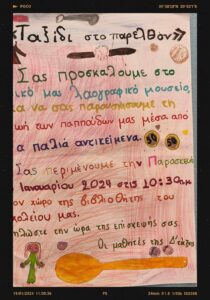 Ταξίδι στο παρελθόν
Σας προσκαλούμε στο
ικό μας λαογραφικό μουσείο,
να σας παρουσιάσουμε τη
ωή των παππούδων μας μέσα από
α παλιά αντικείμενα.
Σας περιμένουμε την Παρασκευή
Ιανουαρίου 2024 στις 10:30πμ
ον χώρο της βιβλιοθήκης του
χολείου μας.
την ώρα της επίσκεψής σας.
Οι μαθητές της Δ΄
POCO